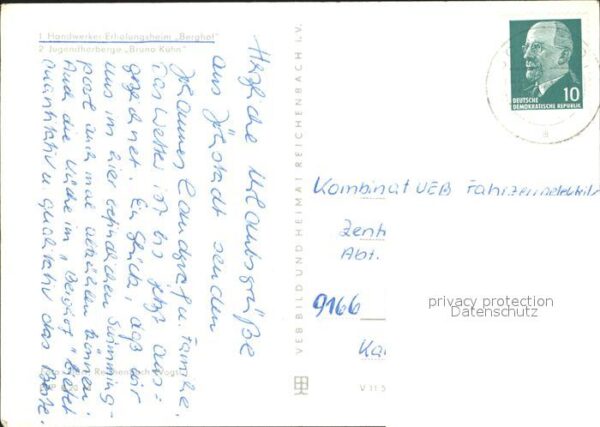 1 Handwerker-Erholungsheim „Berghof"
2 Jugendherberge „Bruno Kühn"
Herzliche Urlaubsgrüße
aus Jöhstadt senden
Johannes Landgraf u. Familie.
Das Wetter ist bis jetzt aus-
gezeichnet. Ein Glück, daß wir
uns im hier befindlichen Swimming-
pool auch mal abkühlen können.
Auch die Küche im „Berghof" bietet
quantitativ u. qualitativ das Beste.
Reichenbach (Vogtl
VEB BILD UND HEIMAT REICHENBACH I.V.
V 11 5
10
DEUTSCHE
DEMOKRATISCHE REPUBLIK
a
Kombinat VEB Fahrzeugelektrik
Zent
Abt.
9166
Ka
privacy protection
Datenschutz